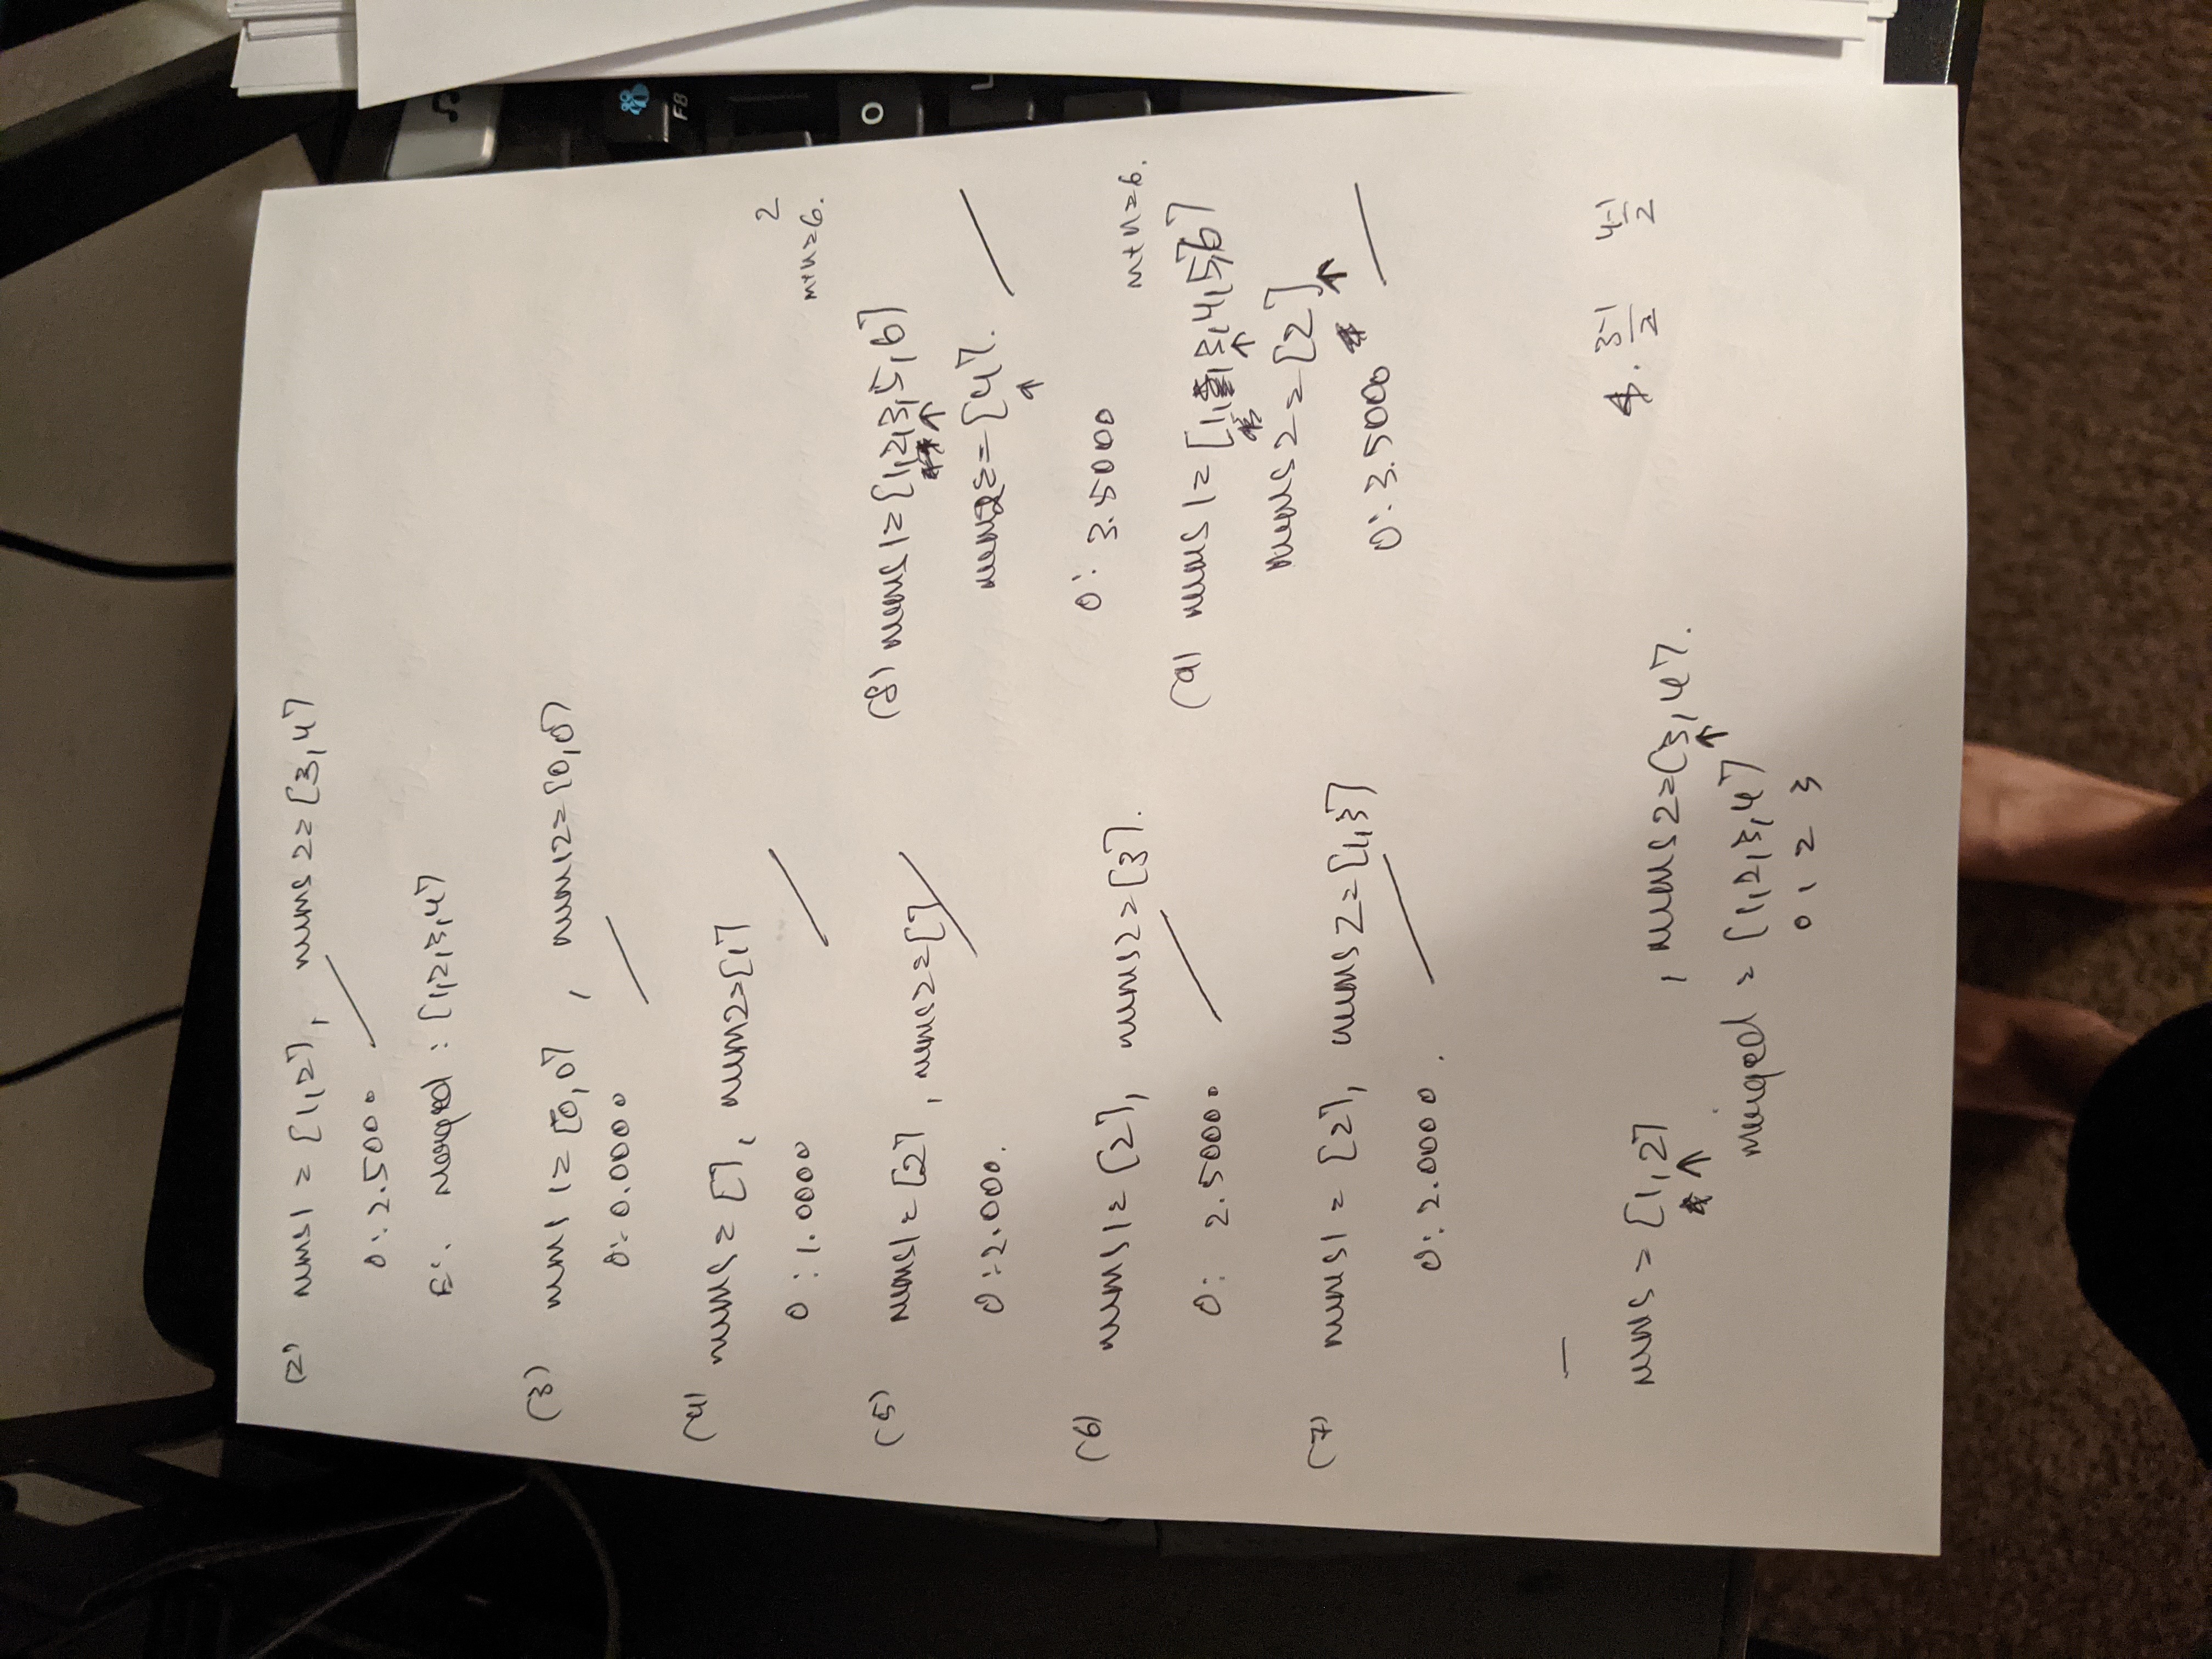 (2) nums1 = [1,2], nums2 = [3,4]
O: 2.5000
E: Merged: [1,2,3,4]
(3) num1 = [0,0], num2 = [0,0]
O: 0.0000
(4) nums = [], num2 = [1]
O: 1.0000
(5) nums1 = [2], nums2 = []
O: 2.000.
(6) nums1 = [2], nums2 = [3].
O: 2.50000
(7) nums1 = [2], nums2 = [1,3]
O: 2.0000.
2
m+n=6.
(8) nums1 = [1,2,3,5,6]
nums2 = [4].
O: 3.5000
m+n=6.
(9) nums1 = [1,3,4,5,6]
nums2 = [2]
O: 3.5000
3-1/2 4-1/2
nums = [1,2], nums2 = [3,4].
merged = [1,2,3,4]
0 1 2 3
F8
O
L